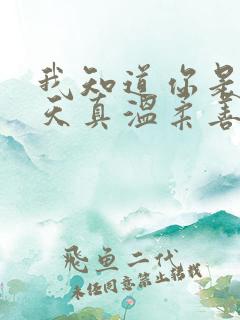 我知道你是
天真温柔善
飛魚二代
未经同意禁止转载